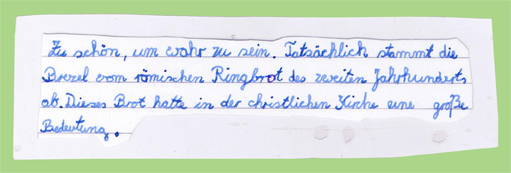 Zu schön, um wahr zu sein. Tatsächlich stammt die
Brezel vom römischen Ringbrot des zweiten Jahrhunderts
ab. Dieses Brot hatte in der christlichen Kirche eine große
Bedeutung.